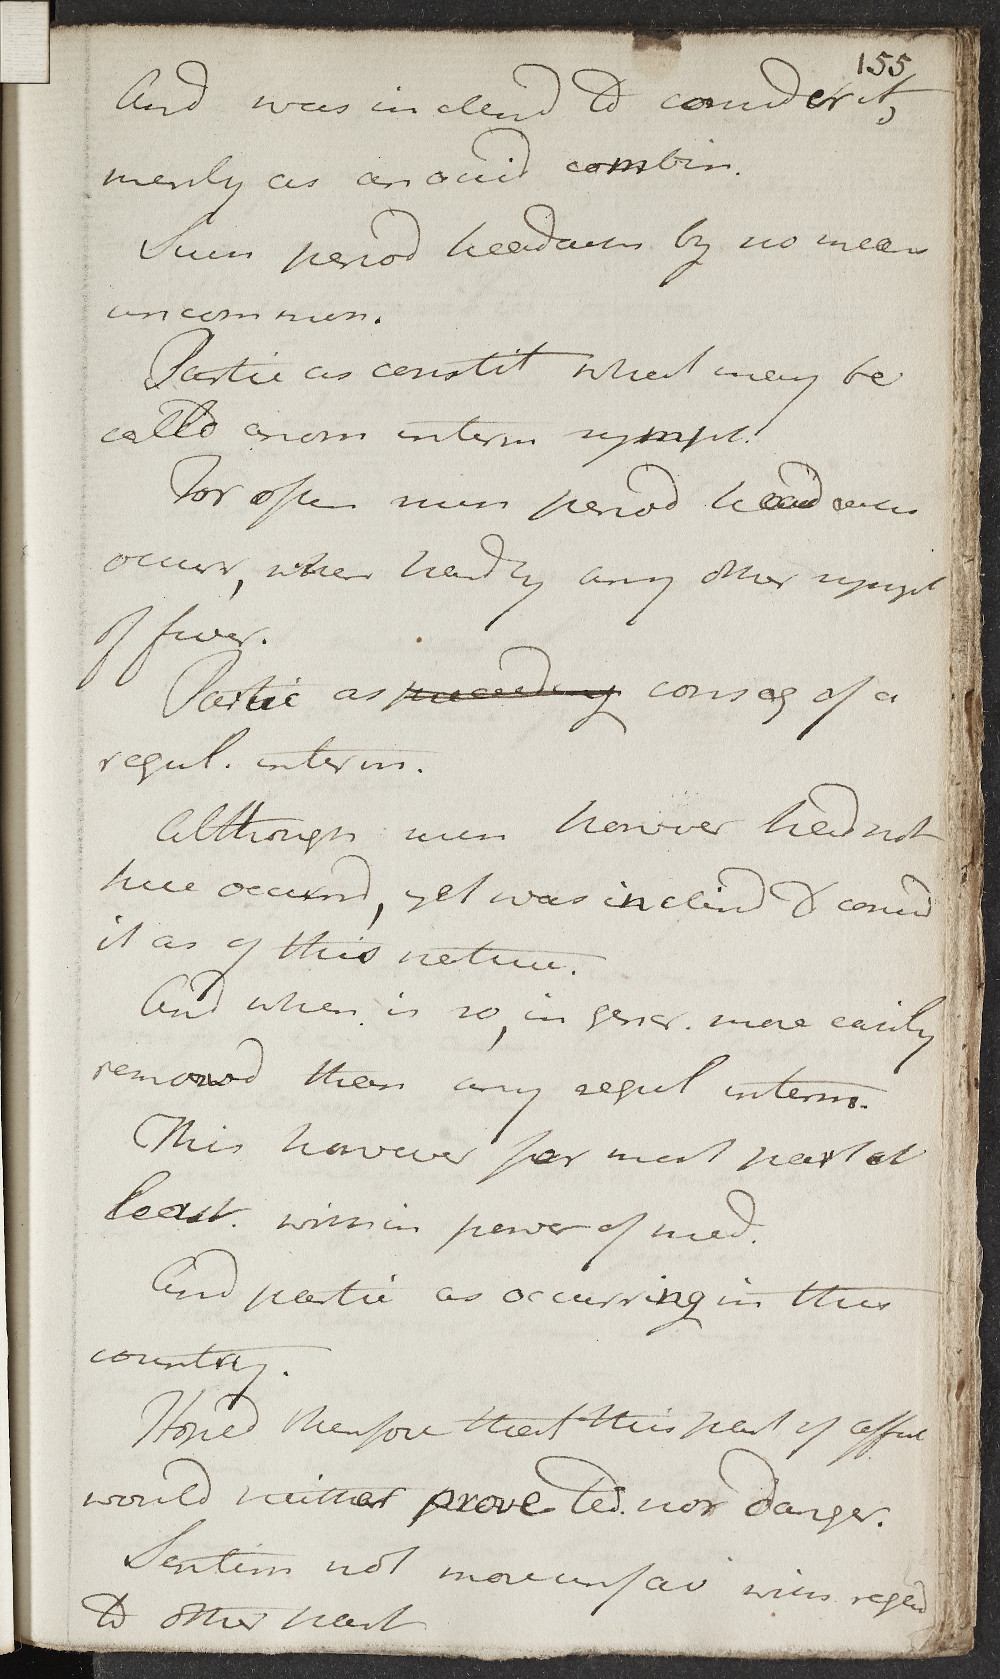 155
And was inclend to consider it,
merely as an accid combin.
Such period headachs by no mean
uncommon.
Partic as constit what may be
calld anom interm sympt.
For often such period headachs
occurr, when hardly any other sympt
of fever.
Partic as preceeding conseq of a
regul. interm.
Although such however had not
here occurrd, yet was inclind to consid
it as of this nature.
And when is so, in gener. more easily
removd than any regul interm.
This however for most part at
least. within power of med.
And partic as occurring in this
country.
Hoped therefore that this part of affect
would neither prove ted. nor danger.
Sentim not more unfav with regard
to other part